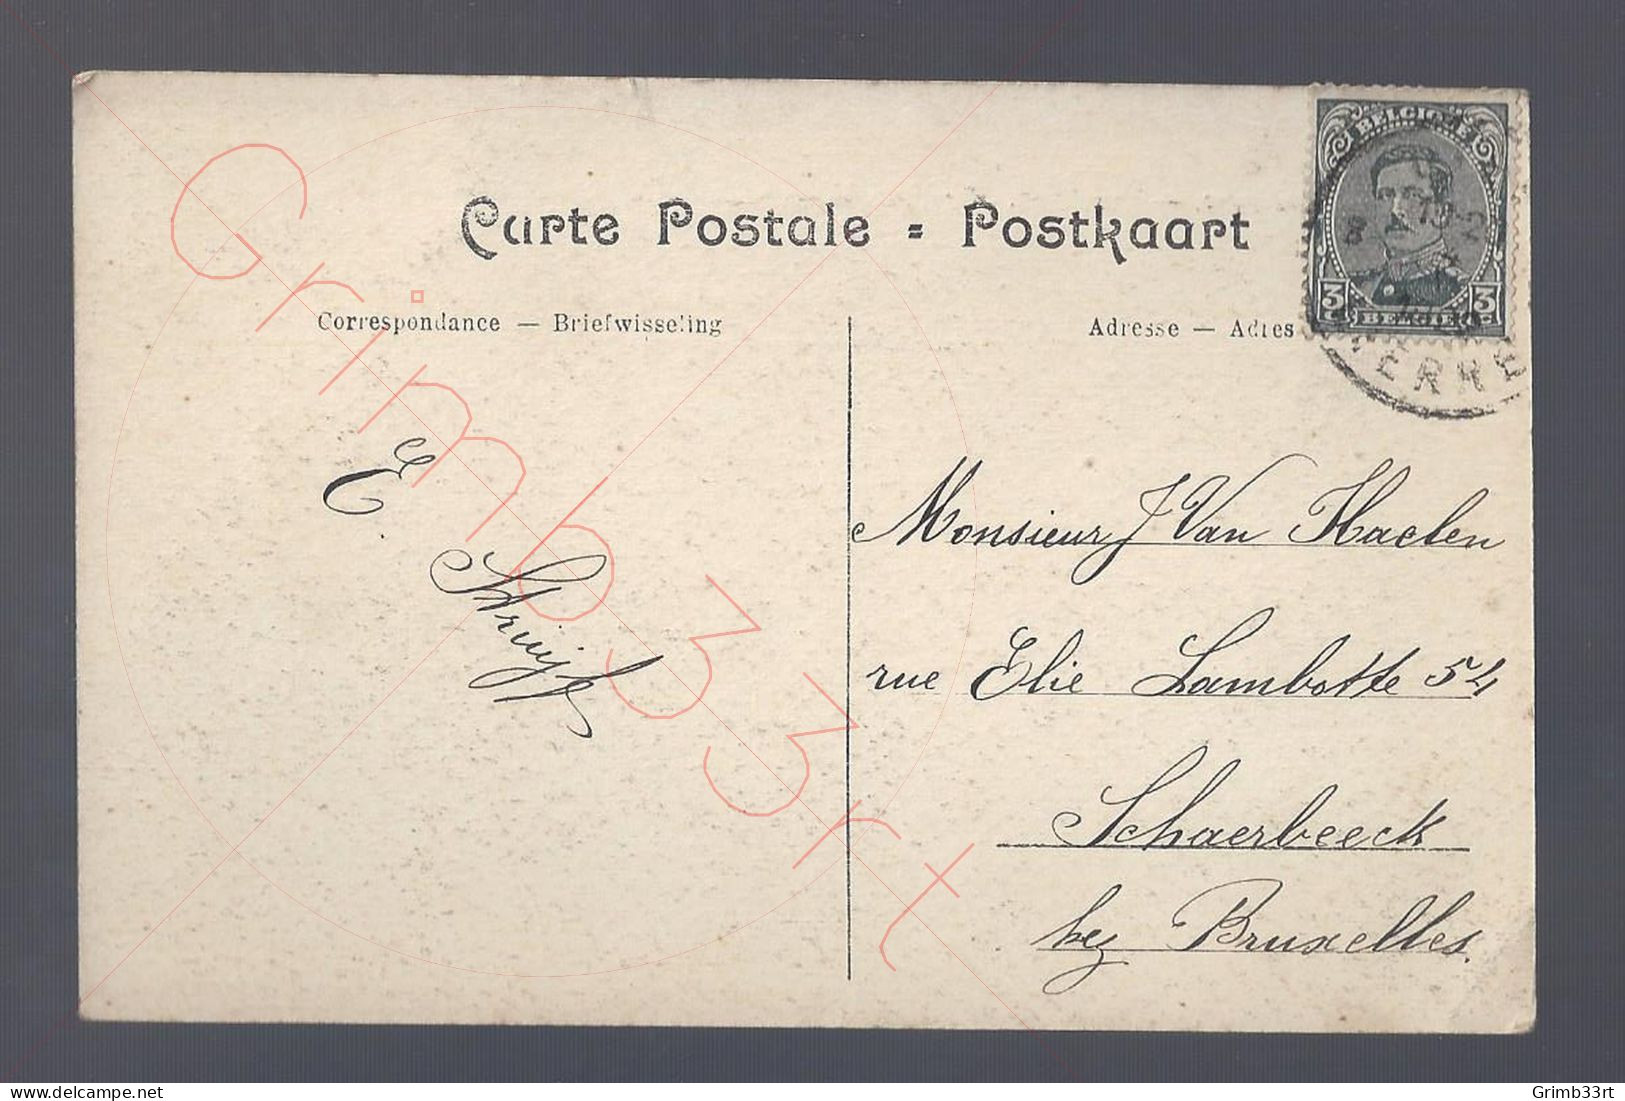 Carte Postale = Postkaart
Correspondance — Briefwisseling
Adresse — Adres
BELGIQUE
3 3
BELGIE
ERRE
E. Struyf
Monsieur J Van Haelen
rue Elie Lambotte 54
Schaerbeeck
bez Bruxelles.
Grimb33rt
delcampe.net
Grimb33rt